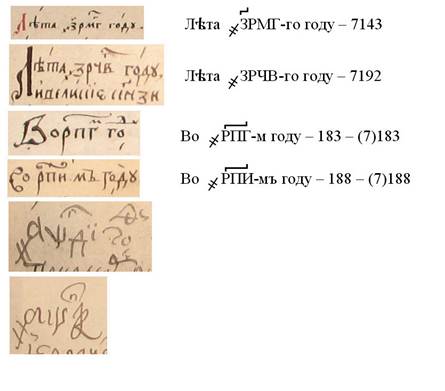 Лѣта ҂зрмг году.
Лѣта ҂ЗРМГ-го году – 7143
Лѣта ҂зрчв году.
Лѣта ҂ЗРЧВ-го году – 7192
Во рпг го
Во ҂РПГ-м году – 183 – (7)183
Во рпи мъ году
Во ҂РПИ-мъ году – 188 – (7)188
҂аѱді го